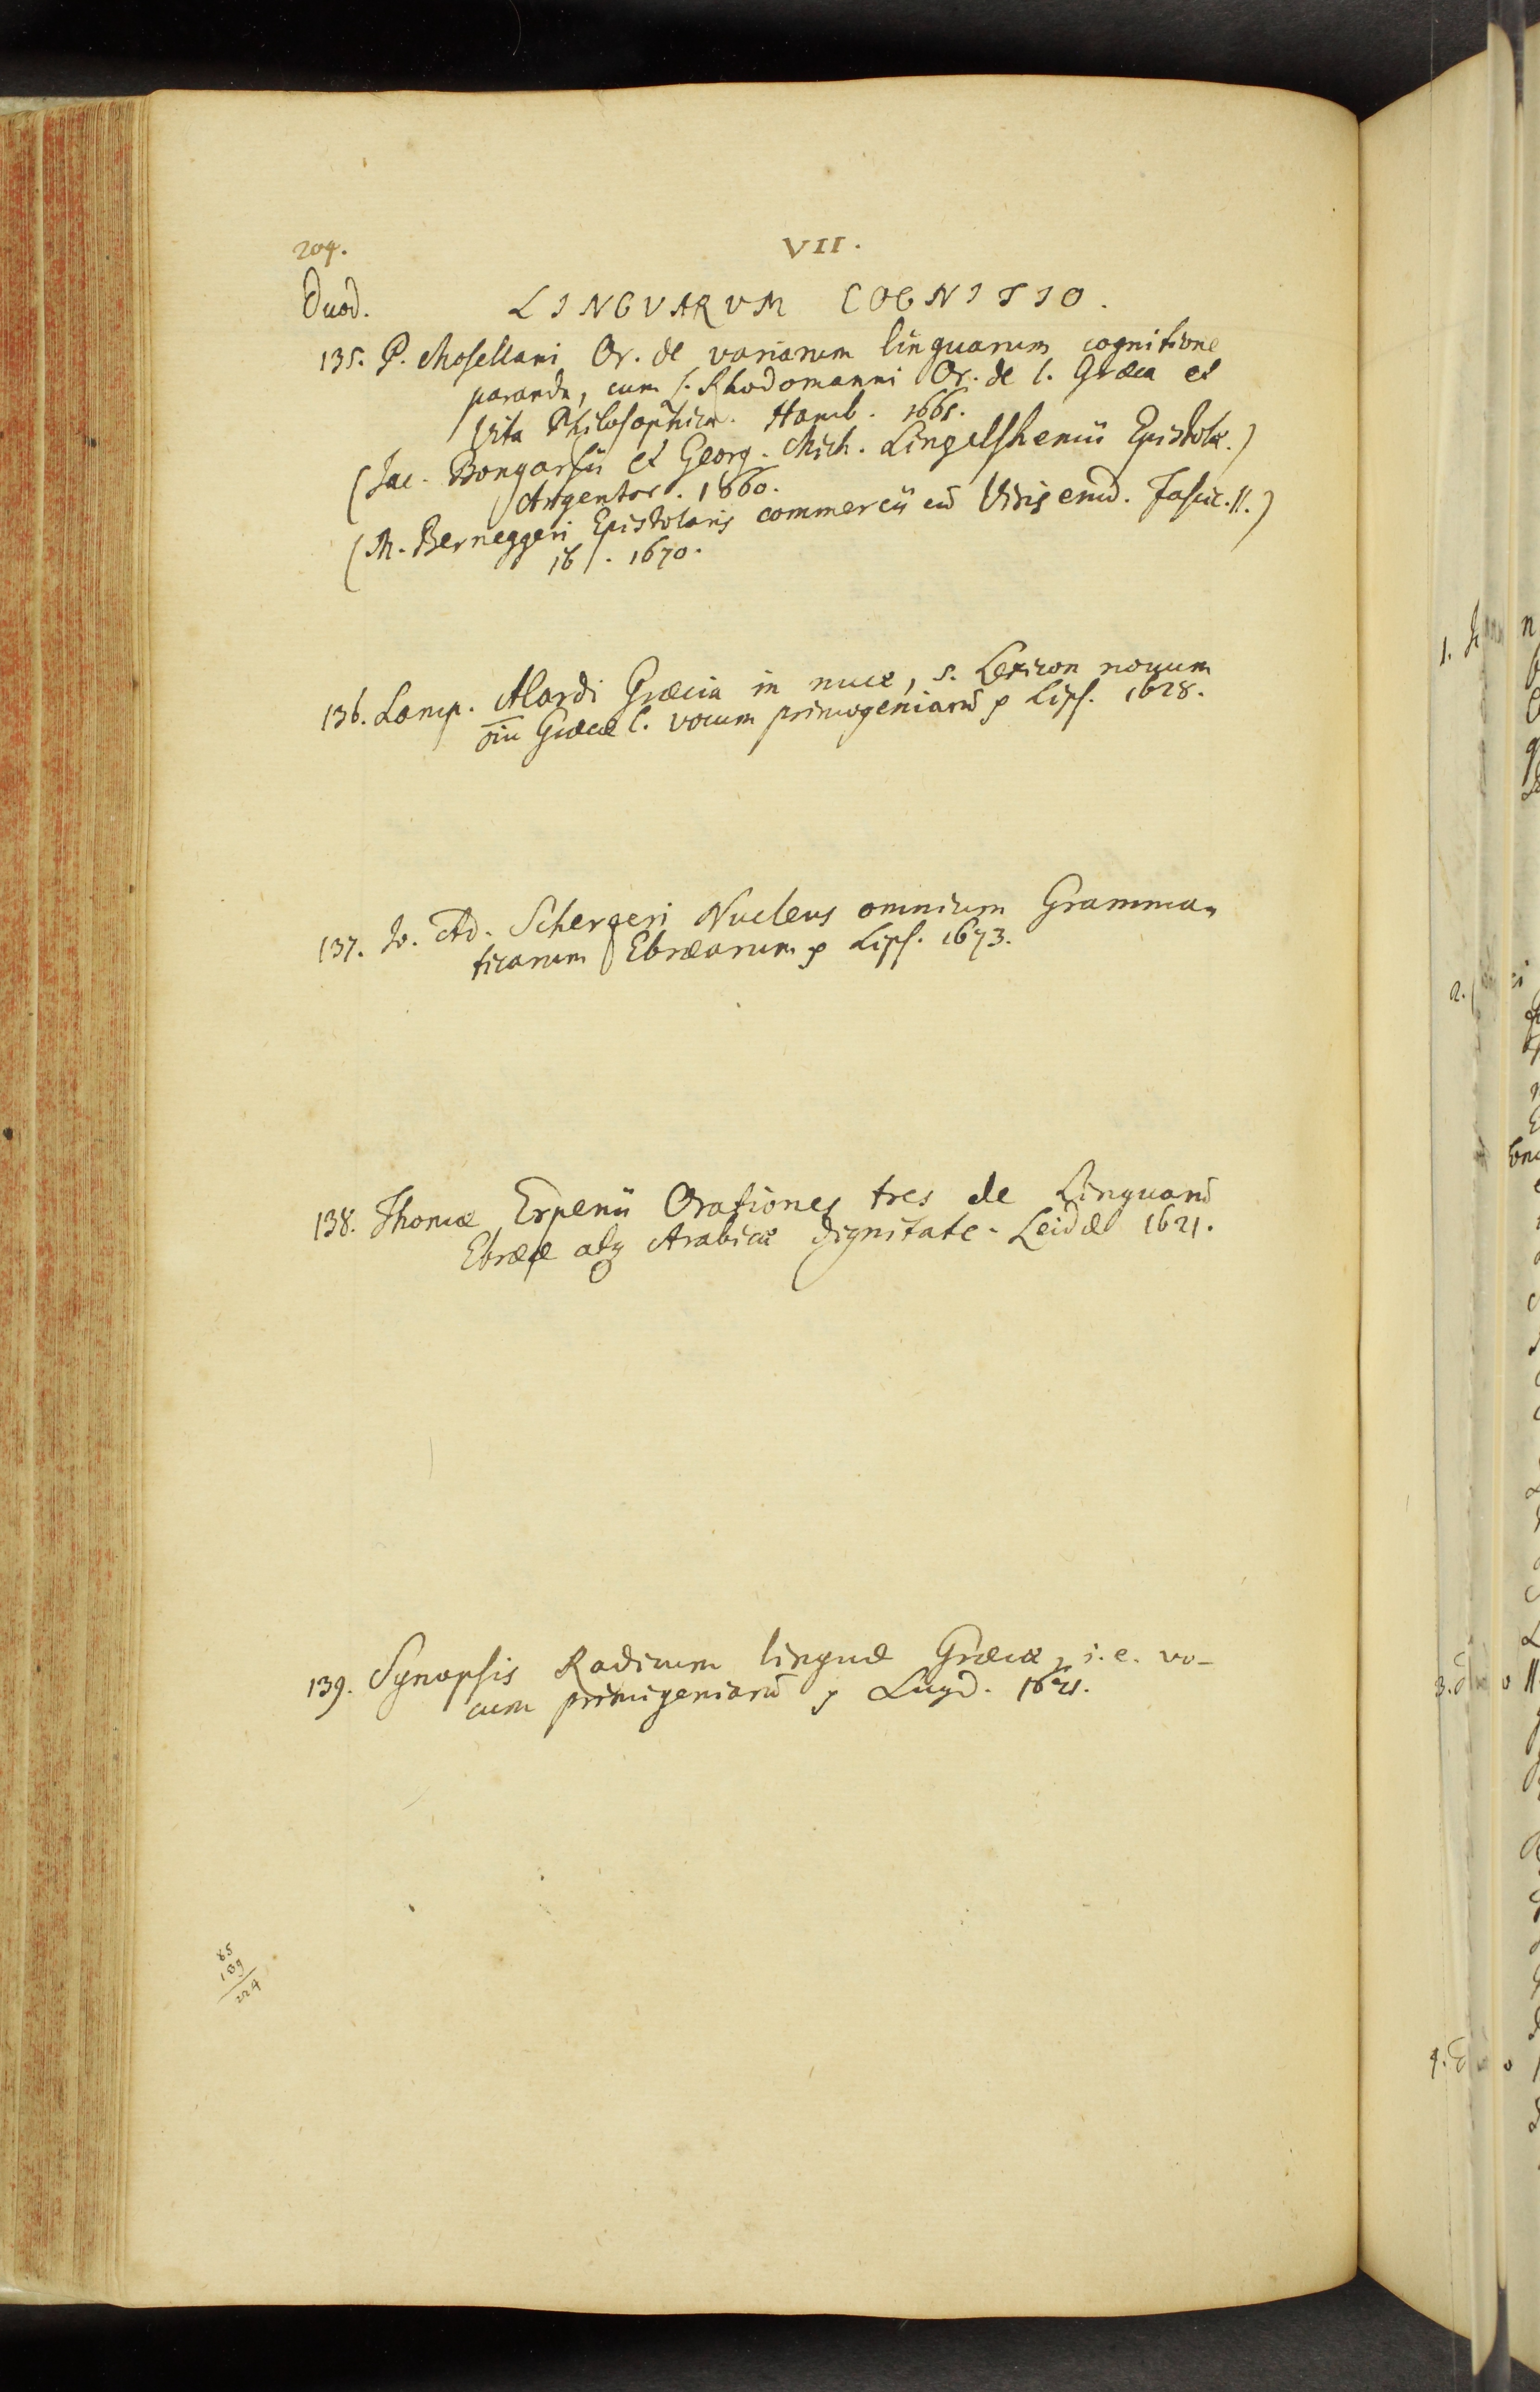 204.
VII.
Duod.
LINGVARVM COGNITIO.
135. P. Mosellani Or. de variarum linguarum cognitione
paranda, cum L. Rhodomanni Or. de l. Græca et
Vita Philosophica. Hamb. 1661.
(Jac. Bongarsii et Georg. Mich. Lingelshemii Epistolæ.)
Argentor. 1660.
(M. Berneggeri Epistolaris commercii cū Viris erud. Fascic. II.)
ib. 1670.
136. Lamp. Alardi Græcia in nuce, s. Lexicon novum
oīu Græcæ l. vocum primogeniarū p Lips. 1628.
137. Jo. Ad. Schergeri Nucleus omnium Gramma-
ticarum Ebræarum p Lips. 1673.
138. Thomæ Erpenii Orationes tres de Linguarū
Ebrææ atq Arabicæ dignitate. Leidæ 1621.
139. Synopsis Radicum linguæ Græcæ, i.e. vo-
cum primigeniarū p Lugd. 1621.
85
139
224
1.
2.
3.
4.